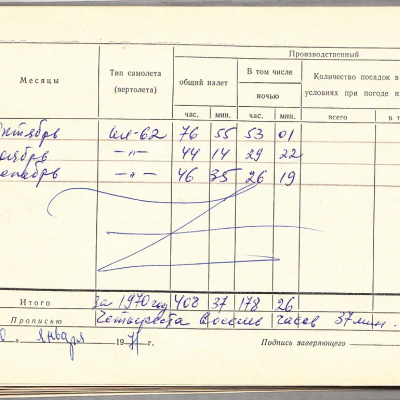 Производственный
Месяцы Тип самолета (вертолета) общий налет В том числе ночью Количество посадок в условиях при погоде
час. мин. час. мин. всего в т
Октябрь Ил-62 76 55 53 01
Ноябрь —"— 44 14 29 22
Декабрь —"— 46 35 26 19
Итого за 1970 год 408 37 178 26
Прописью Четыреста восемь часов 37 мин.
" января 1971 г. Подпись заверяющего